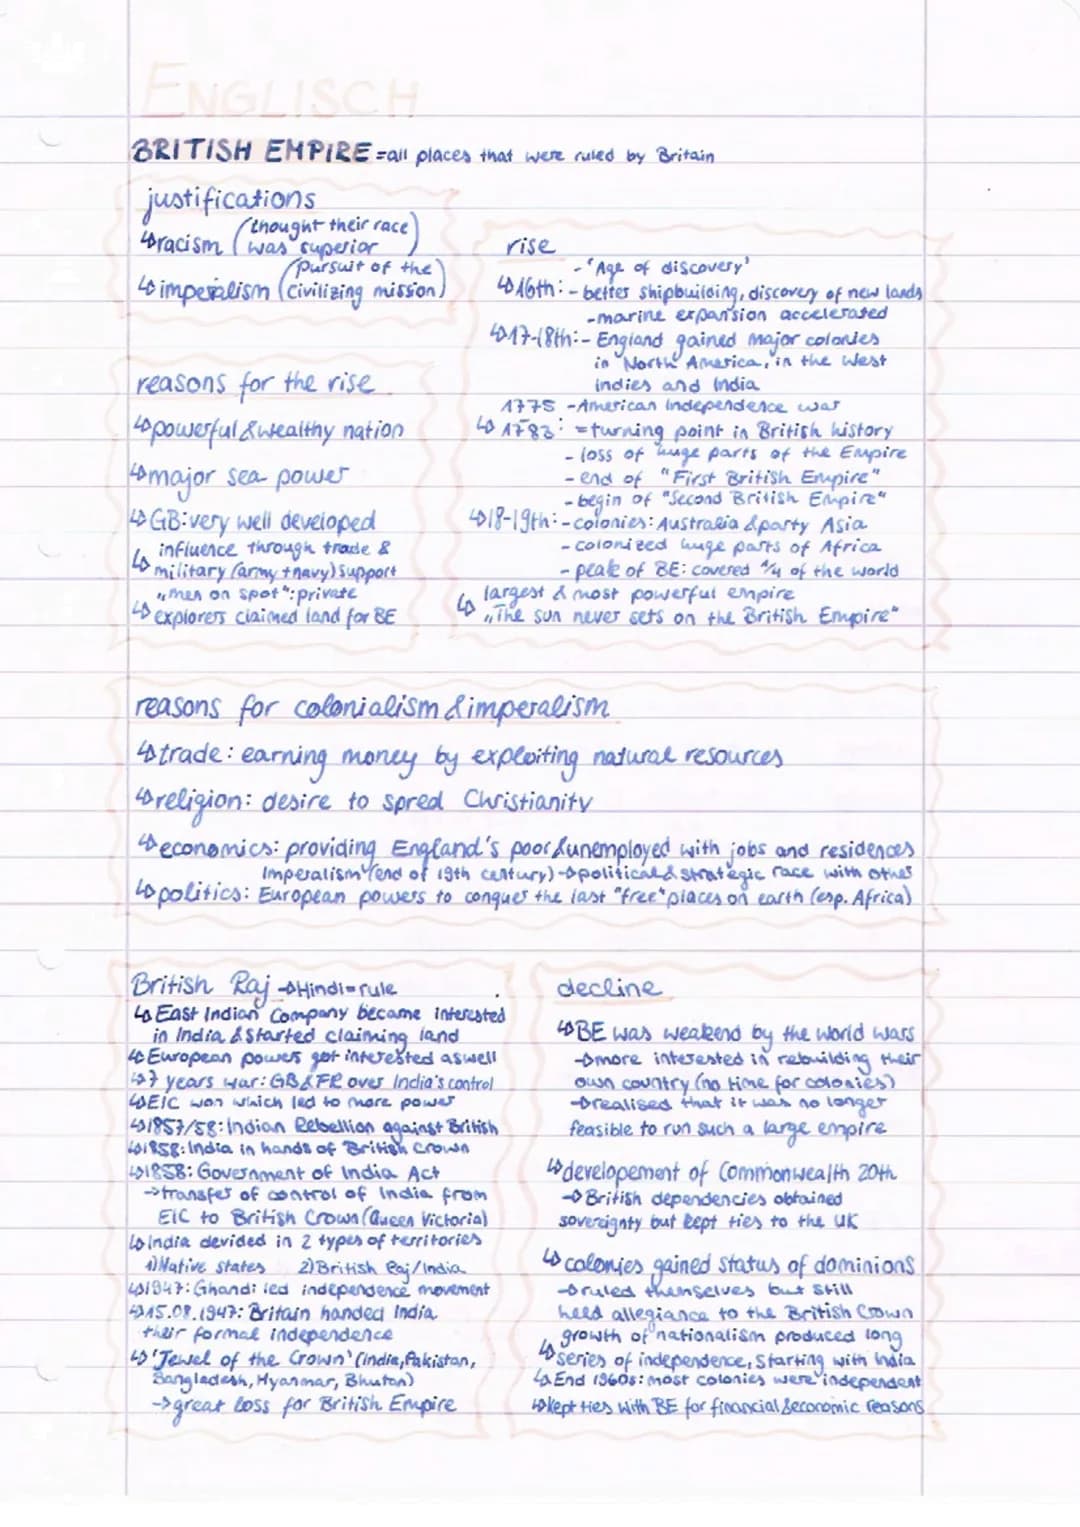 ENGLISCH
BRITISH EMPIRE = all places that were ruled by Britain
justifications
↳ racism (thought their race
was superior)
↳ imperalism (pursuit of the
civilizing mission)
reasons for the rise
↳ powerful & wealthy nation
↳ major sea power
↳ GB: very well developed
↳ influence through trade &
military (army + navy) support
↳ „men on spot“: private
explorers claimed land for BE
rise
- 'Age of discovery'
↳ 16th: - better shipbuilding, discovery of new lands
- marine expansion accelerated
↳ 17-18th: - England gained major colonies
in North America, in the West
Indies and India
1775 - American Independence war
↳ 1783: = turning point in British history
- loss of huge parts of the Empire
- end of "First British Empire"
- begin of "Second British Empire"
↳ 18-19th: - colonies: Australia & party Asia
- colonized huge parts of Africa
- peak of BE: covered 1/4 of the world
↳ largest & most powerful empire
„The sun never sets on the British Empire"
reasons for colonialism & imperalism
↳ trade: earning money by exploiting natural resources
↳ religion: desire to spred Christianity
↳ economics: providing England's poor & unemployed with jobs and residences
Imperalism (end of 19th century) → political & strategic race with other
↳ politics: European powers to conquer the last "free" places on earth (esp. Africa)
British Raj → Hindi = rule
↳ East Indian Company became interested
in India & started claiming land
↳ European powers got interested aswell
↳ 7 years war: GB & FR over India's control
↳ EIC won which led to more power
↳ 1857/58: Indian Rebellion against British
↳ 1858: India in hands of British Crown
↳ 1858: Government of India Act
→ transfer of control of India from
EIC to British Crown (Queen Victoria)
↳ India devided in 2 types of territories
1) Native states 2) British Raj/India
↳ 1947: Ghandi led independence movement
↳ 15.08.1947: Britain handed India
their formal independence
↳ 'Jewel of the Crown' (India, Pakistan,
Bangladesh, Myanmar, Bhutan)
→ great loss for British Empire
decline
↳ BE was weakend by the world wars
→ more interested in rebuilding their
own country (no time for colonies)
→ realised that it was no longer
feasible to run such a large empire
↳ developement of Commonwealth 20th
→ British dependencies obtained
sovereignty but kept ties to the UK
↳ colonies gained status of dominions
→ ruled themselves but still
held allegiance to the British Crown
↳ growth of nationalism produced long
series of independence, starting with India
↳ End 1960s: most colonies were independent
↳ kept ties with BE for financial & economic reasons